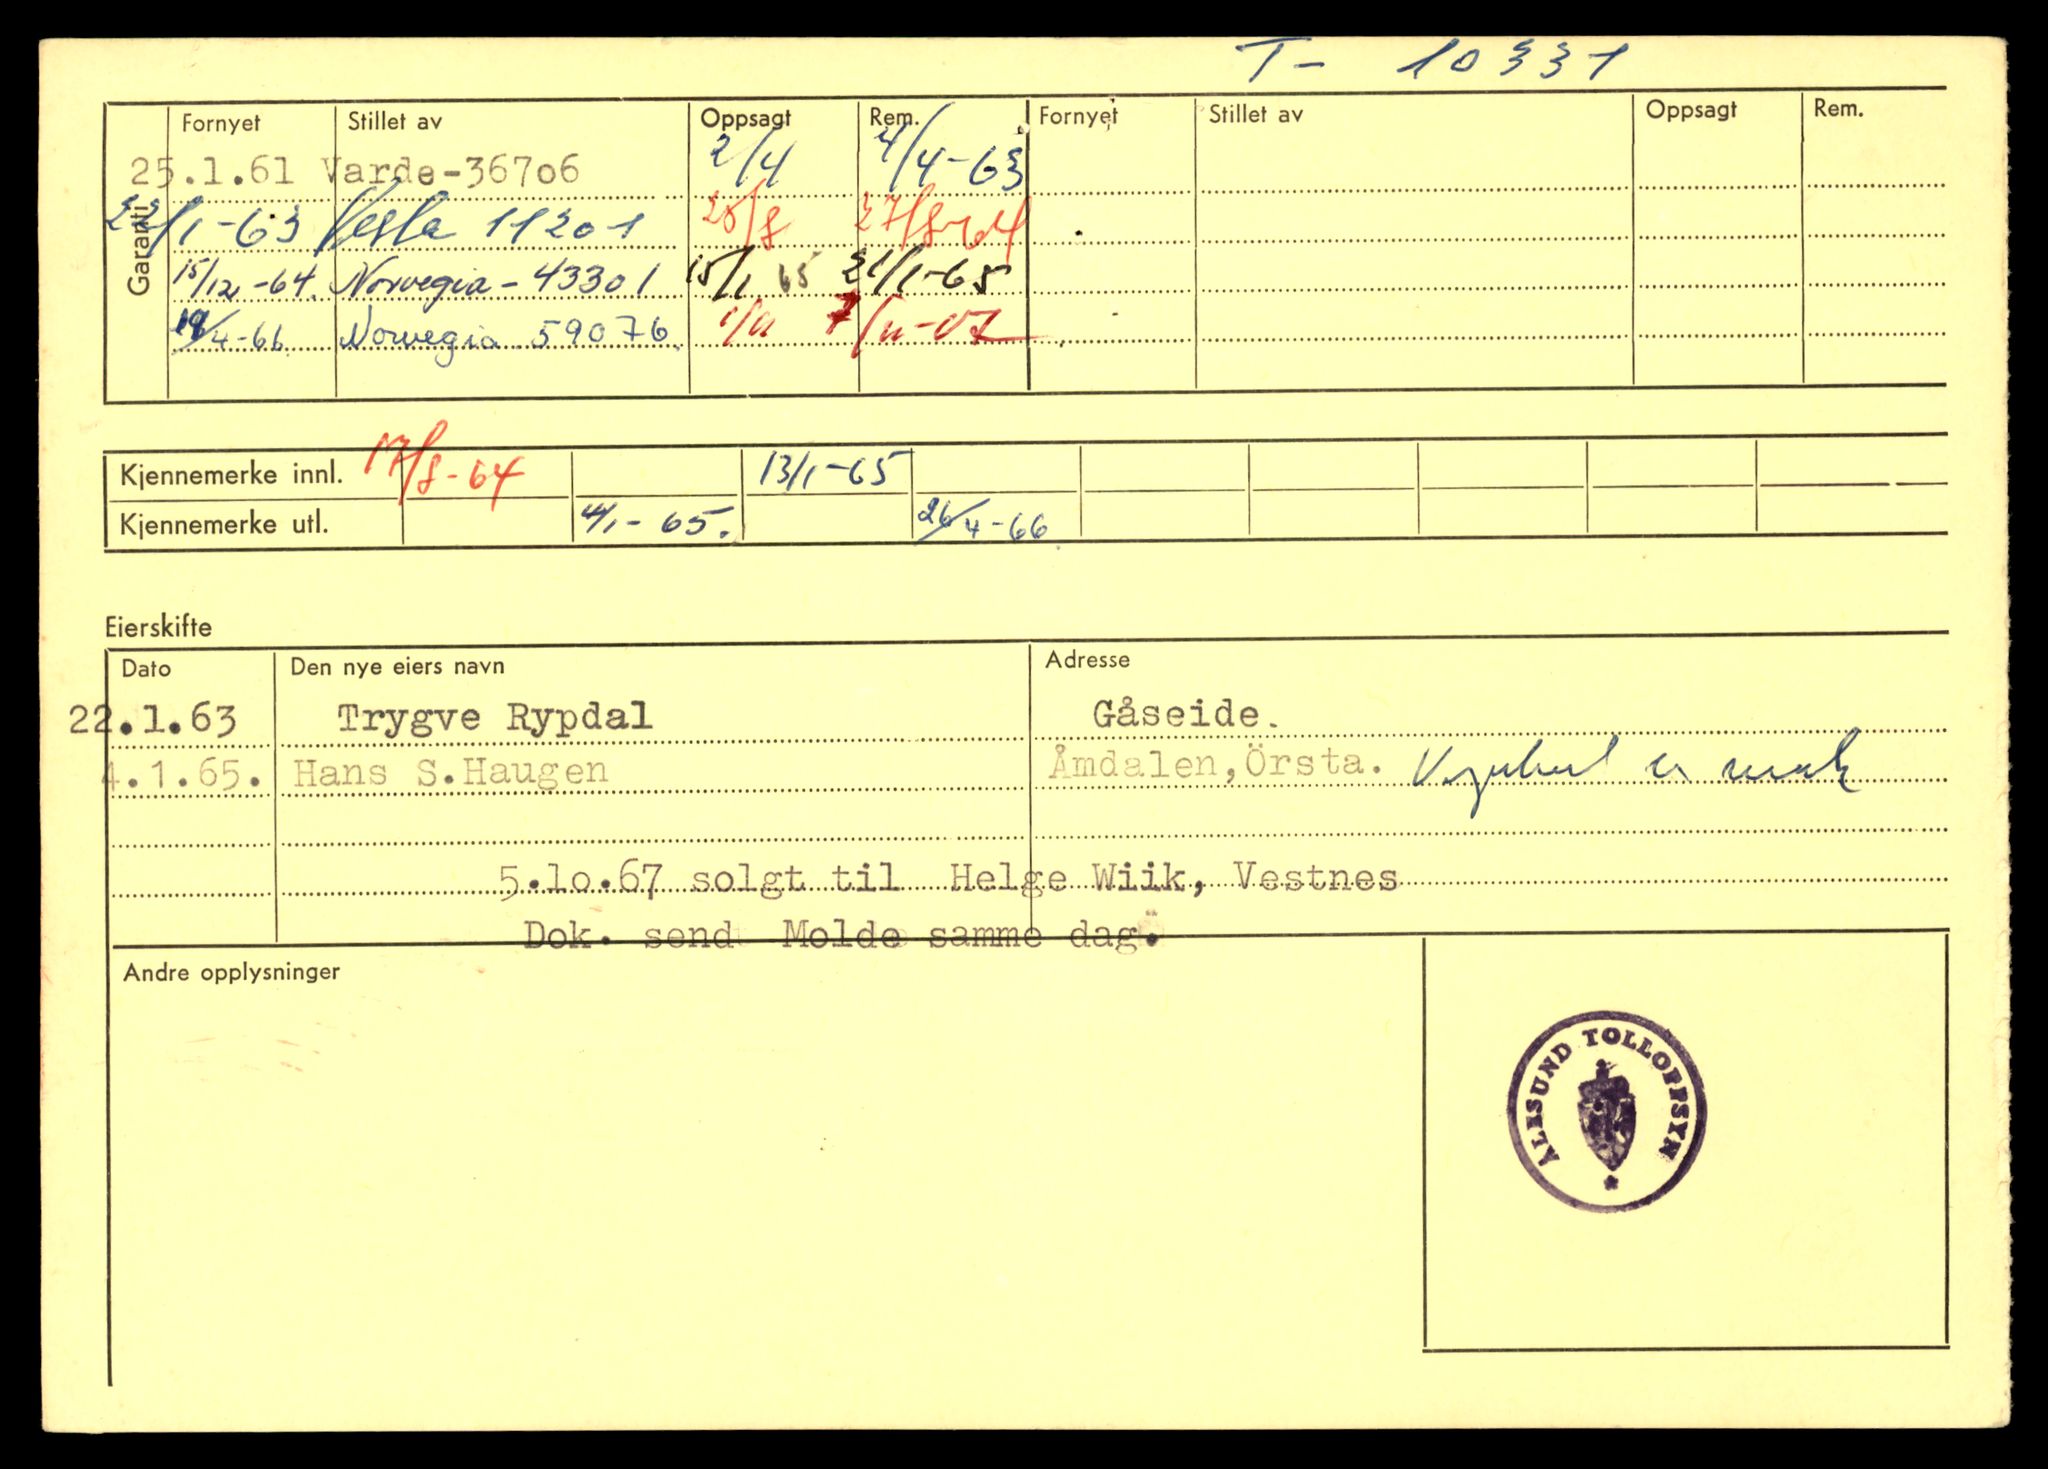 T- 10331
Garanti
Fornyet Stillet av Oppsagt Rem. Fornyet Stillet av Oppsagt Rem.
25.1.61 Varde-36706 2/4 4/4-63
22/1-63 Vesta 11201 28/8 27/8-64
15/12-64. Norvegia-43301 15/1 65 21/1-65
19/4-66 Norvegia 59076.
Kjennemerke innl. 17/8-64 13/1-65
Kjennemerke utl. 4/1-65. 26/4-66
Eierskifte
Dato Den nye eiers navn Adresse
22.1.63 Trygve Rypdal Gåseide.
4.1.65. Hans S.Haugen Åmdalen,Örsta.
5.10.67 solgt til Helge Wiik, Vestnes
Dok. send Molde samme dag.
Andre opplysninger
ÅLESUND TOLLOPPSYN